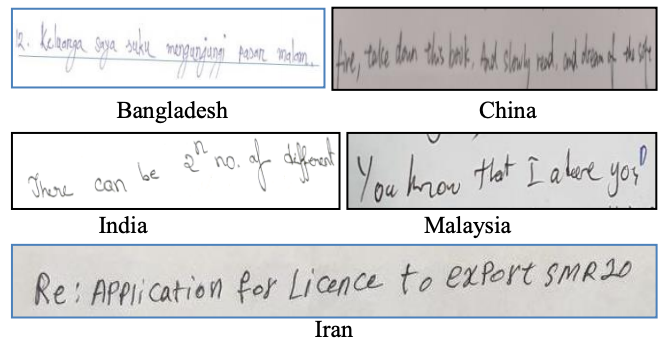 12. Keluarga saya suku mengunjungi pasar malam.
fire, take down this book, And slowly read, and dream of the soft
Bangladesh
China
There can be 2^n no. of different
You know that I above you
India
Malaysia
Re: Application for Licence to export SMR20
Iran